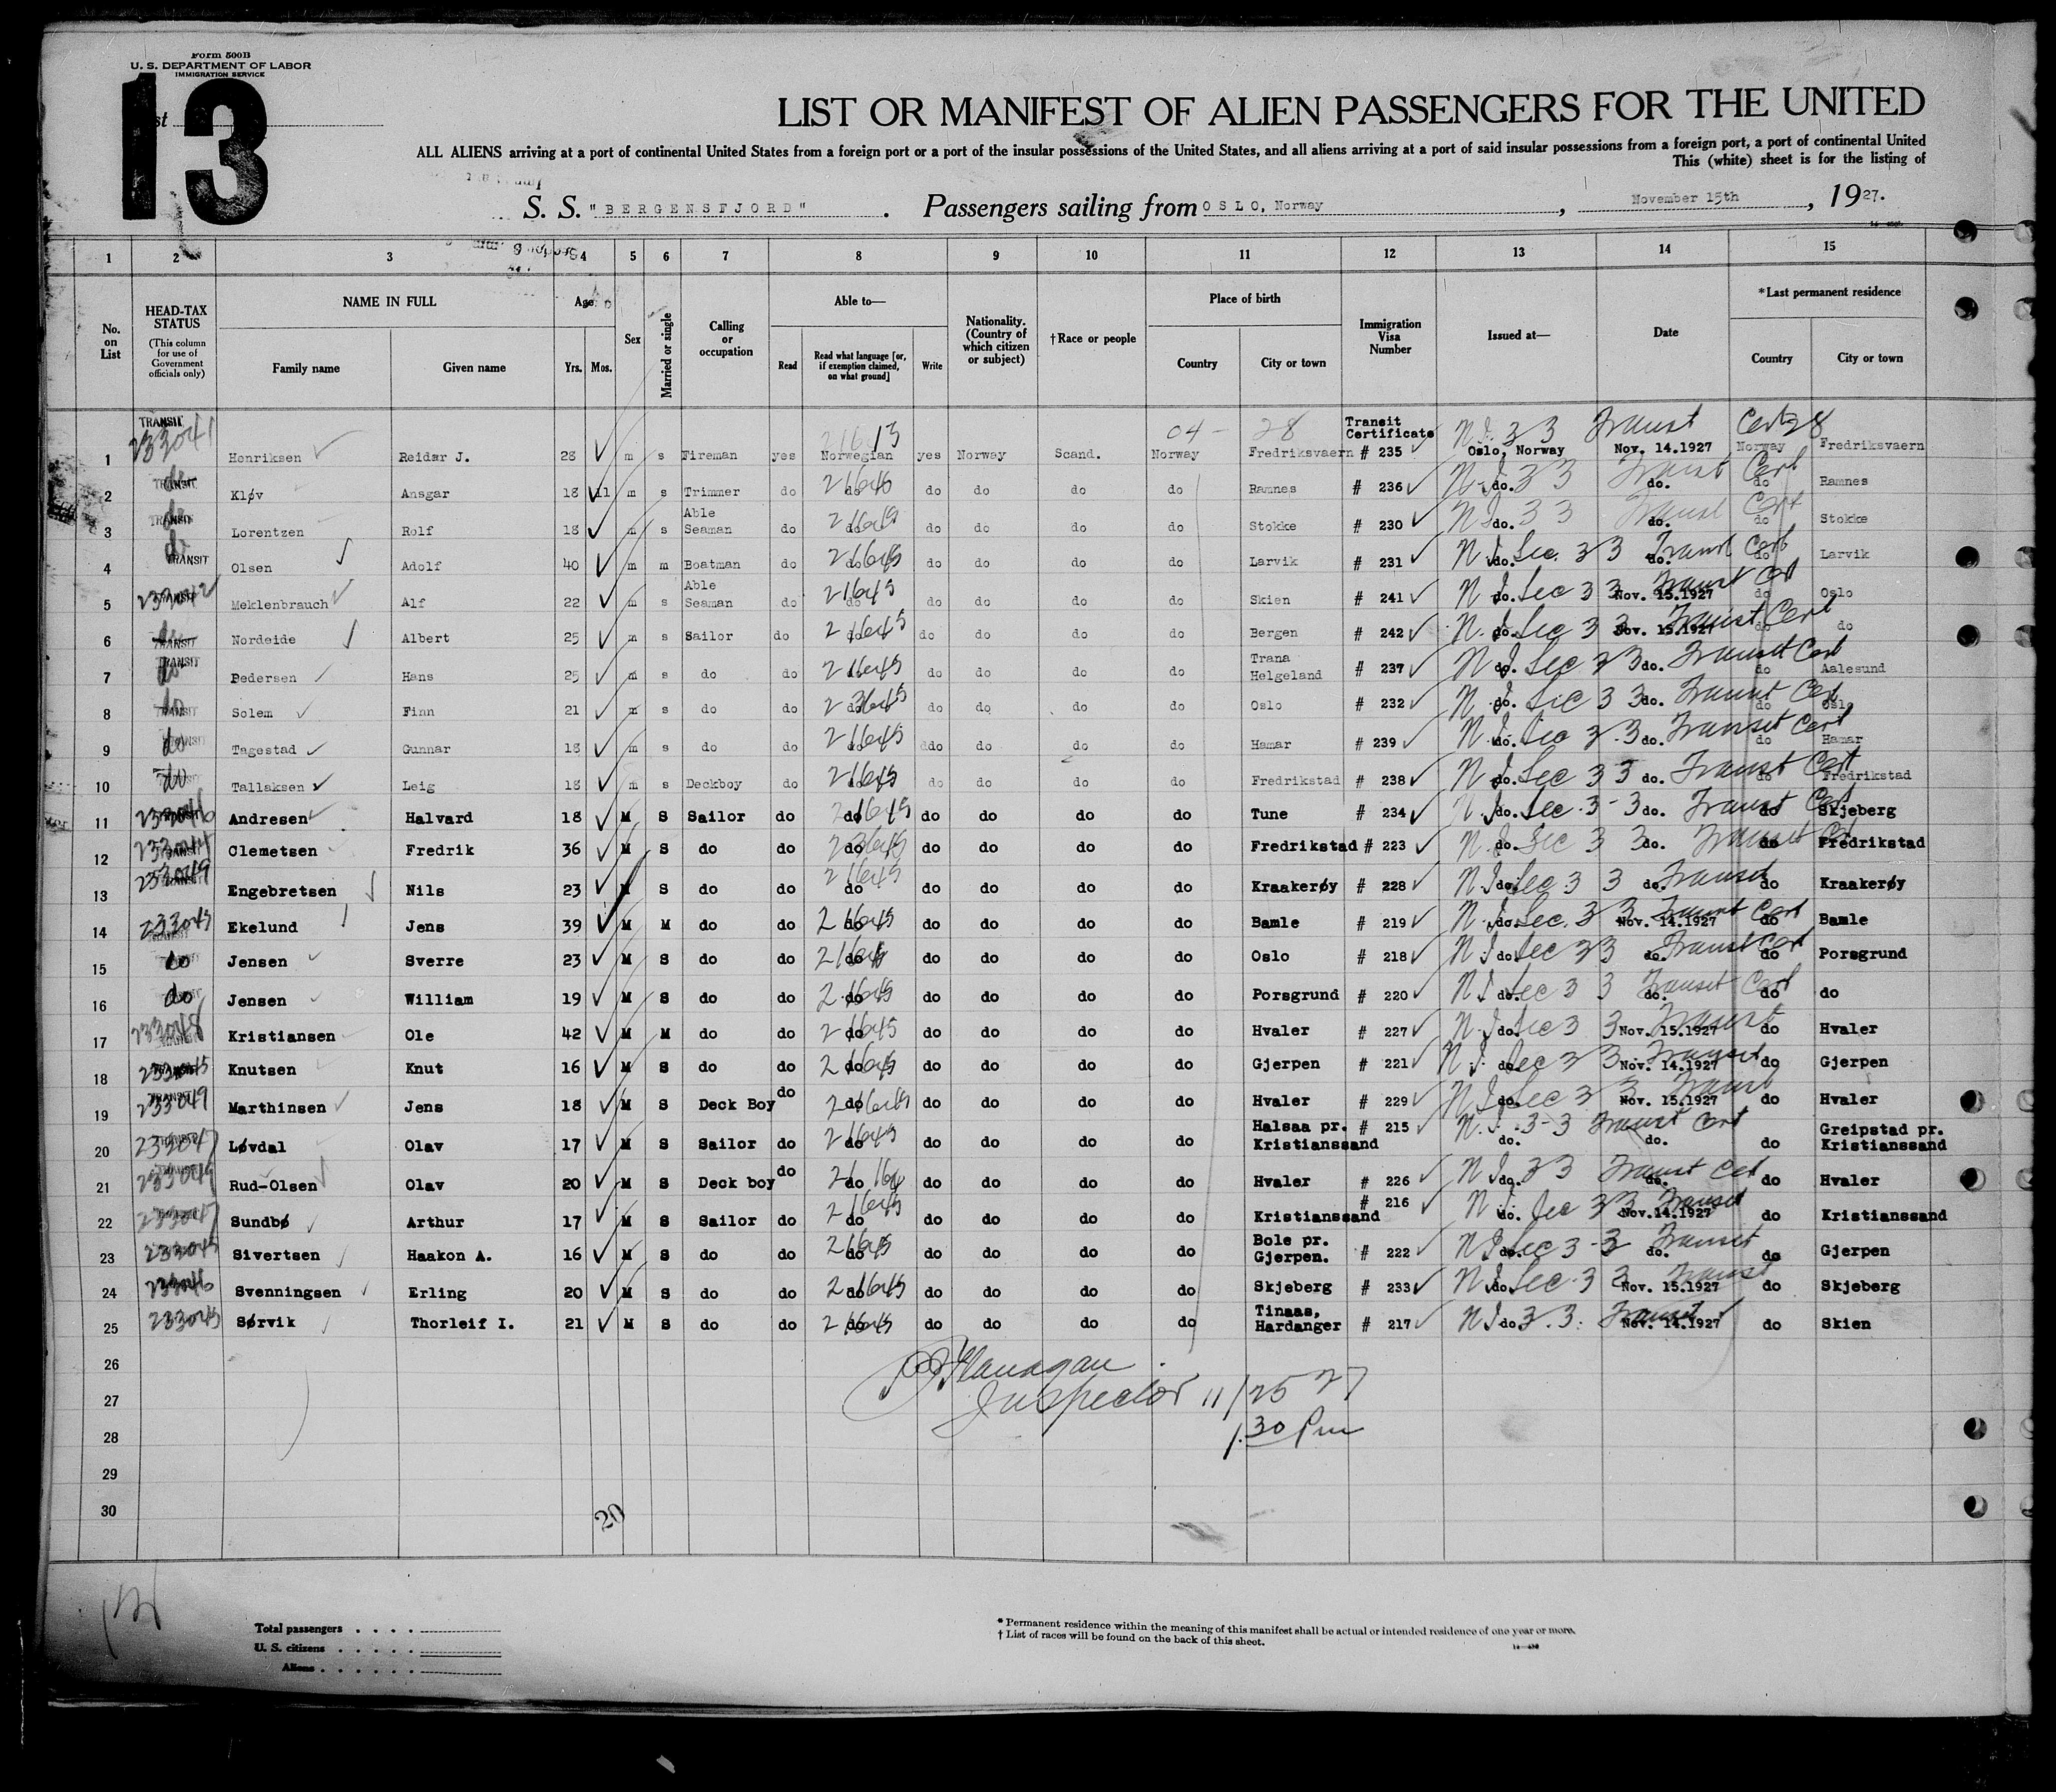 Form 500B
U. S. DEPARTMENT OF LABOR
IMMIGRATION SERVICE
13
LIST OR MANIFEST OF ALIEN PASSENGERS FOR THE UNITED
ALL ALIENS arriving at a port of continental United States from a foreign port or a port of the insular possessions of the United States, and all aliens arriving at a port of said insular possessions from a foreign port, a port of continental United
This (white) sheet is for the listing of
S. S. "BERGENSFJORD". Passengers sailing from OSLO, Norway, November 15th, 1927.
1 2 3 4 5 6 7 8 9 10 11 12 13 14 15
No. on List
HEAD-TAX STATUS
(This column for use of Government officials only)
NAME IN FULL
Family name
Given name
Age
Yrs. Mos.
Sex
Married or single
Calling or occupation
Able to—
Read
Read what language [or, if exemption claimed, on what ground]
Write
Nationality. (Country of which citizen or subject)
†Race or people
Place of birth
Country
City or town
Immigration Visa Number
Issued at—
Date
*Last permanent residence
Country
City or town
Transit Certificate
1 TRANSIT 233041 Henriksen Reidar J. 28 m s Fireman yes Norwegian yes Norway Scand. Norway Fredriksvaern # 235 Oslo, Norway Nov. 14.1927 Norway Fredriksvaern
2 TRANSIT do Kløv Ansgar 18 11 m s Trimmer do do do do do do Ramnes # 236 do. do. do Ramnes
3 TRANSIT do Lorentzen Rolf 18 m s Able Seaman do do do do do do Stokke # 230 do. do. do Stokke
4 TRANSIT do Olsen Adolf 40 m m Boatman do do do do do do Larvik # 231 do. do Larvik
5 233042 Meklenbrauch Alf 22 m s Able Seaman do do do do do do Skien # 241 do. Nov. 15.1927 do Oslo
6 TRANSIT do Nordeide Albert 25 m s Sailor do do do do do do Bergen # 242 do. Nov. 15.1927 do do
7 TRANSIT do Pedersen Hans 25 m s do do do do do do do Trana Helgeland # 237 do. do. do Aalesund
8 do Solem Finn 21 m s do do do do do do do Oslo # 232 do. do. do Oslo
9 do Tagestad Gunnar 18 m s do do do do do do do Hamar # 239 do. do. do Hamar
10 do Tallaksen Leig 18 m s Deckboy do do do do do do Fredrikstad # 238 do. do. do Fredrikstad
11 233046 Andresen Halvard 18 M S Sailor do do do do do do Tune # 234 do. do. do Skjeberg
12 Clemetsen Fredrik 36 M S do do do do do do do Fredrikstad # 223 do. do. do Fredrikstad
13 233049 Engebretsen Nils 23 M S do do do do do do do Kraakerøy # 228 do. do. do Kraakerøy
14 233045 Ekelund Jens 39 M M do do do do do do do Bamle # 219 do. Nov. 14.1927 do Bamle
15 do Jensen Sverre 23 M S do do do do do do do Oslo # 218 do. do. do Porsgrund
16 do Jensen William 19 M S do do do do do do do Porsgrund # 220 do. do. do do
17 233048 Kristiansen Ole 42 M M do do do do do do do Hvaler # 227 do. Nov. 15.1927 do Hvaler
18 233045 Knutsen Knut 16 M S do do do do do do do Gjerpen # 221 do. Nov. 14.1927 do Gjerpen
19 TRANSIT 233049 Marthinsen Jens 18 M S Deck Boy do do do do do do Hvaler # 229 do. Nov. 15.1927 do Hvaler
20 233047 Løvdal Olav 17 M S Sailor do do do do do do Halsaa pr. Kristianssand # 215 do. do. do Greipstad pr. Kristianssand
21 233049 Rud-Olsen Olav 20 M S Deck boy do do do do do do Hvaler # 226 do. do. do Hvaler
22 233047 Sundbø Arthur 17 M S Sailor do do do do do do Kristianssand # 216 do. Nov.14.1927 do Kristianssand
23 233045 Sivertsen Haakon A. 16 M S do do do do do do do Bole pr. Gjerpen. # 222 do. do. do Gjerpen
24 233046 Svenningsen Erling 20 M S do do do do do do do Skjeberg # 233 do. Nov. 15.1927 do Skjeberg
25 233045 Sørvik Thorleif I. 21 M S do do do do do do do Tinaas, Hardanger # 217 do. Nov. 14.1927 do Skien
26
27
28
29
30
Flanagan
Inspector 11/25 27
1.30 Pm
20
Total passengers
U. S. citizens
Aliens
* Permanent residence within the meaning of this manifest shall be actual or intended residence of one year or more.
† List of races will be found on the back of this sheet.